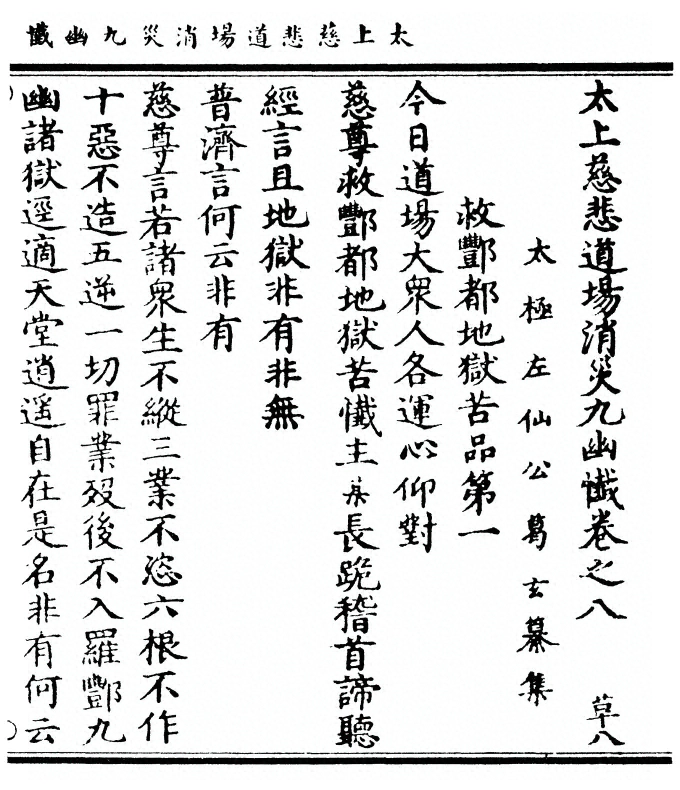 太上慈悲道場消災九幽懺
太上慈悲道場消災九幽懺卷之八 草八
太極左仙公葛玄纂集
救酆都地獄苦品第一
今日道場大眾人各運心仰對
慈尊救酆都地獄苦懺主某長跪稽首諦聽
經言且地獄非有非無
普濟言何云非有
慈尊言若諸眾生不縱三業不恣六根不作
十惡不造五逆一切罪業歿後不入羅酆九
幽諸獄逕適天堂逍遥自在是名非有何云